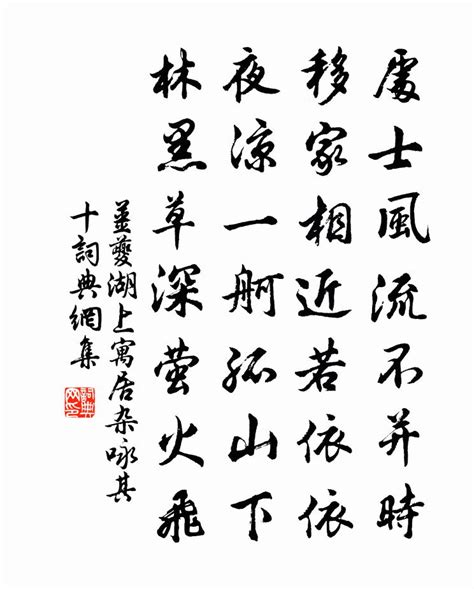 處士風流不并時
移家相近若依依
夜凉一舸孤山下
林黑草深萤火飛
姜夔湖上寓居杂咏其
十詞典網集
詞典
网印